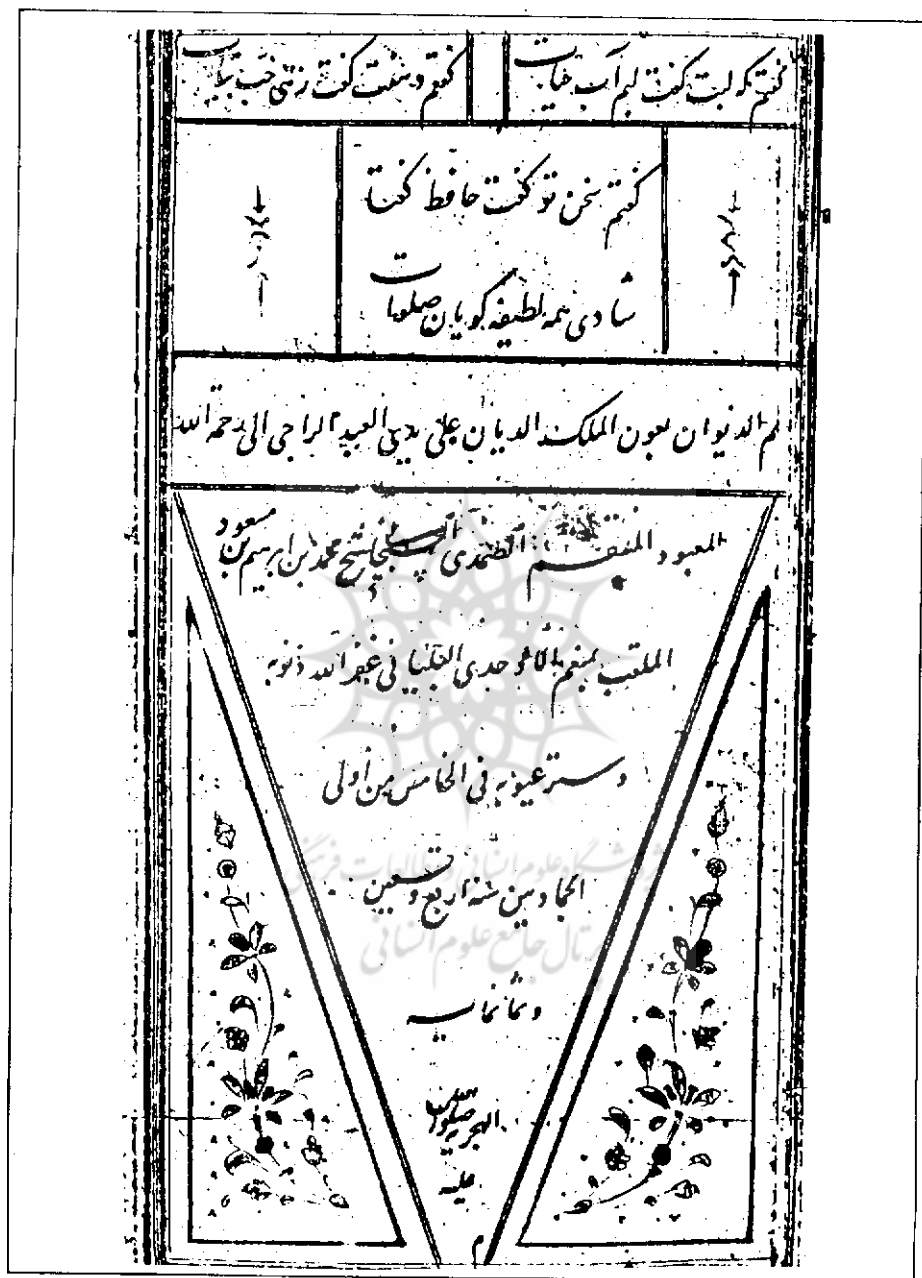 گفتم که لبت گفت لبم آب حیات
گفتم دهنت گفت زهی حب نبات
گفتم سخن تو گفت حافظ گفتا
شادی همه لطیفه گویان صلوات
تم الدیوان بعون الملک الدیان علی یدی العبد الراجی الی رحمة الله
المعبود المنعم محمد ابن ابرهیم بن مسعود
الملقب بمنعم الدین الاوحدی غفر الله ذنوبه
وستر عیوبه فی الخامس من اولی
الجمادیین سنه اربع وتسعین
وثمانمایه
الهجریه
علیه
م
پژوهشگاه علوم انسانی و مطالعات فرهنگی
پرتال جامع علوم انسانی